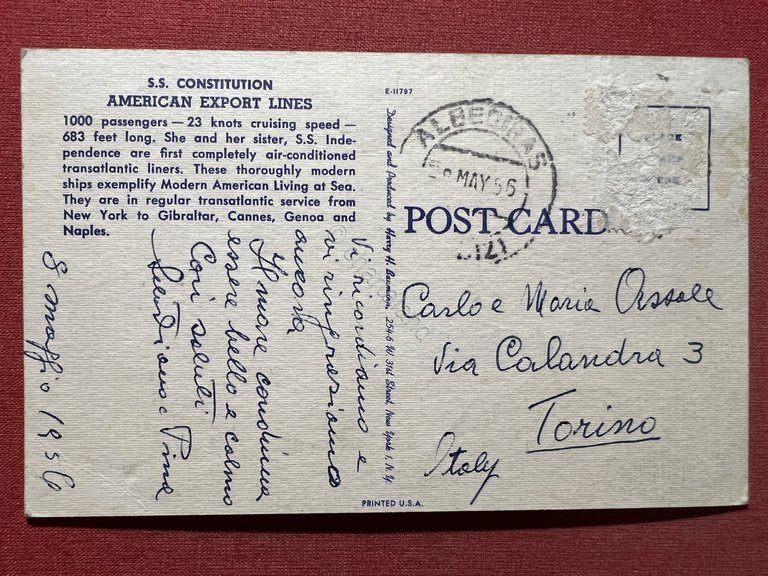 S.S. CONSTITUTION
AMERICAN EXPORT LINES
1000 passengers — 23 knots cruising speed —
683 feet long. She and her sister, S.S. Inde-
pendence are first completely air-conditioned
transatlantic liners. These thoroughly modern
ships exemplify Modern American Living at Sea.
They are in regular transatlantic service from
New York to Gibraltar, Cannes, Genoa and
Naples.
Vi ricordiamo e
vi ringraziamo
ancora
Il mare continua
essere bello e calmo
Cari saluti
e Pina
8 maggio 1956
E-11797
Designed and Produced by Harry H. Baumann, 254-6 W. 31st Street, New York 1, N. Y.
PRINTED U.S.A.
ALGECIRAS
MAY 56
POST CARD
PLACE
Carlo e Maria
Via Calandra 3
Torino
Italy